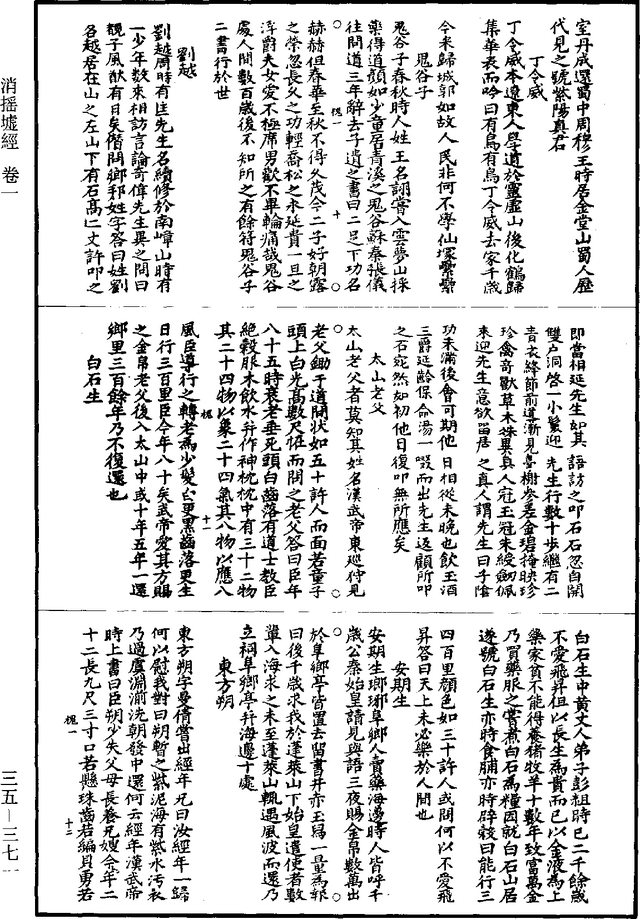 消搖墟經　卷一
三五―三七一
室丹成還蜀中周穆王時居金堂山蜀人歷
代見之號紫陽真君
丁令威
丁令威本遼東人學道於靈虛山後化鶴歸
集華表而吟曰有鳥有鳥丁令威去家千歲
今來歸城郭如故人民非何不學仙塚纍纍
鬼谷子
鬼谷子春秋時人姓王名詡嘗入雲夢山採
藥得道顏如少童居青溪之鬼谷蘇秦張儀
往問道三年辭去子遺之書曰二足下功名
槐一　十
赫赫但春華至秋不得久茂今二子好朝露
之榮忽長久之功輕喬松之永延貴一旦之
浮爵夫女愛不極席男歡不畢輪痛哉鬼谷
處人間數百歲後不知所之有餘符鬼谷子
二書行於世
劉越
劉越周時有匡先生名續修於南嶂山時有
一少年數來相訪言論奇偉先生異之問曰
觀子風猷有日矣僭問鄉邦姓字答曰姓劉
名越居在山之左山下有石高二丈許叩之
即當相延先生如其語訪之叩石石忽自開
雙戶洞啓一小鬟迎先生行數十步繼有二
青衣絳節前導漸見臺榭參差金碧掩映珍
珍禽奇獸草木殊異真人冠玉冠朱綬劒佩
來迎先生意欲留居之真人謂先生曰子陰
功未滿後會可期他日相從未晚也飲玉酒
三爵延齡保命湯一啜而出先生返顧所叩
之石宛然如初他日復叩無所應矣
太山老父
太山老父者莫知其姓名漢武帝東巡狩見
老父鋤于道間狀如五十許人而面若童子
頭上白光高數尺恠而問之老父答曰臣年
八十五時衰老垂死頭白齒落有道士教臣
絶穀服术飲水并作神枕枕中有三十二物
其二十四物以象二十四氣其八物以應八
槐一　十一
風臣導行之轉老為少髮亡更黑齒落更生
日行三百里臣今年八十矣武帝愛其方賜
之金帛老父後入太山中或十年五年一還
鄉里三百餘年乃不復還也
白石生
白石生中黃丈人弟子彭祖時已二千餘歲
不愛飛昇但以長生為貴而已以金液為上
藥家貧不能得養猪牧羊十數年致富萬金
乃買藥服之嘗煮白石為糧因就白石山居
遂號白石生亦時食脯亦時辟穀日能行三
四百里顏色如三十許人或問何以不愛飛
昇答曰天上未必樂於人間也
安期生
安期生瑯琊阜鄉人賣藥海邊時人皆呼千
歲公秦始皇請見與語三夜賜金帛數萬出
於阜鄉亭皆置去留書并赤玉舄一量為報
曰後千歲求我於蓬萊山下始皇遣使者數
輩入海求之未至蓬萊山輒遇風波而還乃
立祠阜鄉亭并海邊十處
東方朔
東方朔字曼倩嘗出經年兄曰汝經年一歸
何以慰我對曰朔暫之紫泥海有紫水汚衣
乃過虞淵湔洗朝發中還何云經年漢武帝
時上書曰臣朔少失父母長養兄嫂今年二
十二長九尺三寸口若懸珠齒若編貝勇若
槐一　十二